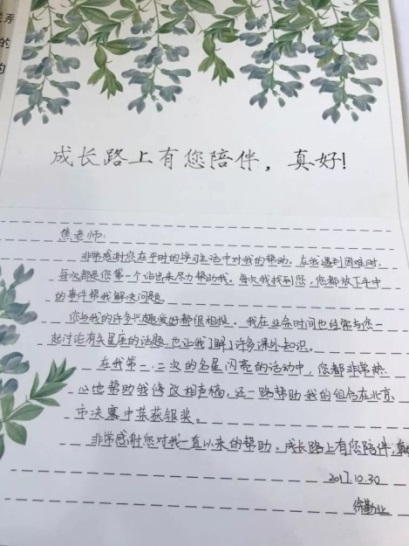 的
成长路上有您陪伴，真好！
焦老师：
非常感谢您在平时的学习生活中对我的帮助。在我遇到困难时，
每次都是您第一个站出来尽力帮助我。每次我找到您，您都放下手中
的事件帮我解决问题。
您与我的许多兴趣爱好都很相投。我在业余时间也经常与您一
起讨论有关星座的话题，也让我了解了许多课外知识。
在我第一、二次的名星闪亮的活动中，您都非常热
心地帮助我修改相声稿，还一路帮助我的组合在北京
市决赛中荣获银奖。
非常感谢您对我一直以来的帮助，成长路上有您陪伴，真
2017.10.30